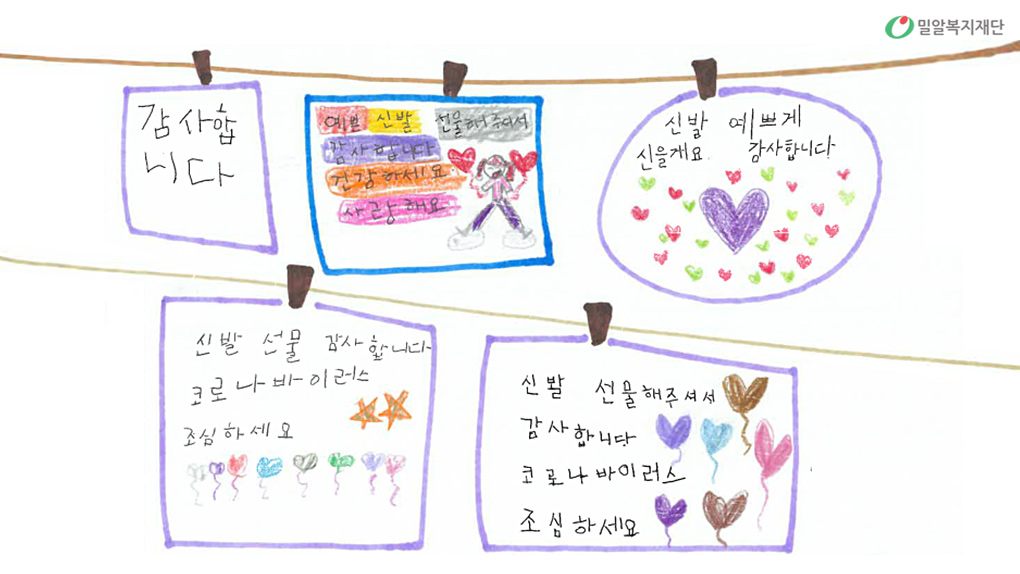 밀알복지재단
감사합
니다
예쁜 신발 선물해주셔서
감사합니다
건강하세요
사랑해요
신발 예쁘게
신을게요 감사합니다
신발 선물 감사합니다
코로나바이러스
조심하세요
신발 선물해주셔서
감사합니다
코로나바이러스
조심하세요